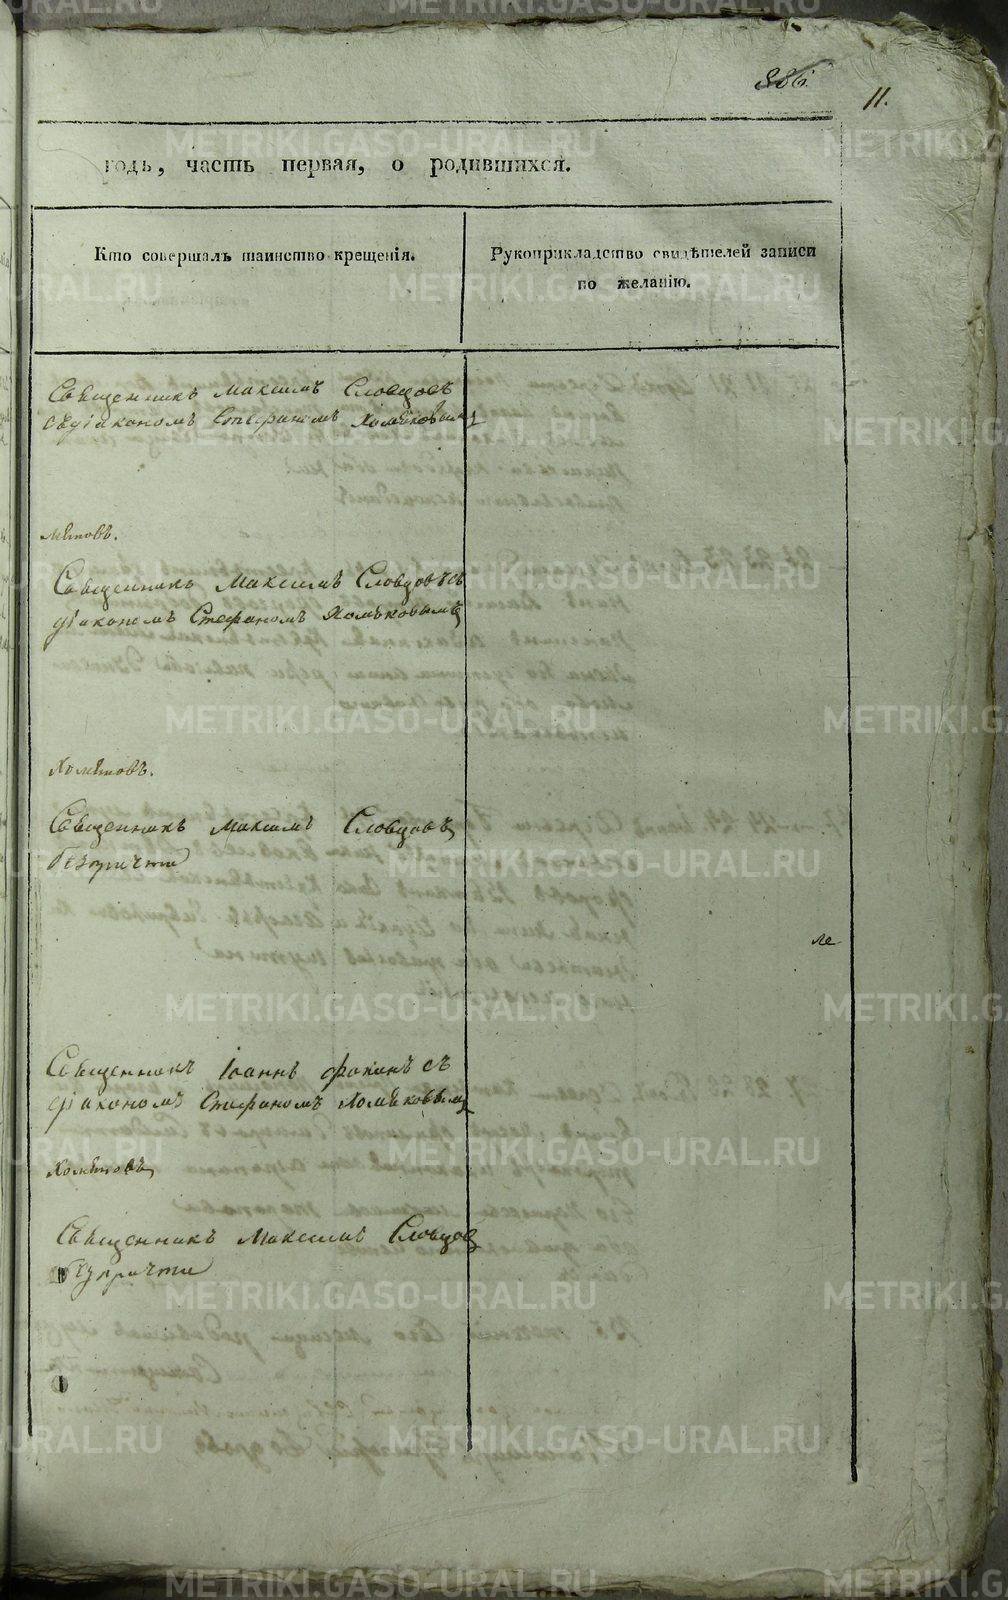 886.
11.
годъ, часть первая, о родившихся.
Кто совершалъ таинство крещенія.
Рукоприкладство свидѣтелей записи
по желанію.
Священникъ Максимъ Словцовъ
съ діакономъ Стефаномъ Хомяковымъ
мѣтовъ.
Священникъ Максимъ Словцовъ съ
діакономъ Стефаномъ Хомяковымъ
Хомѣтовъ.
Священникъ Максимъ Словцовъ
безъ причти
ле
Священникъ Іоаннъ Фокинъ съ
діакономъ Стефаномъ Хомяковымъ
Хомѣтовъ
Священникъ Максимъ Словцовъ
безъ причти
METRIKI.GASO-URAL.RU